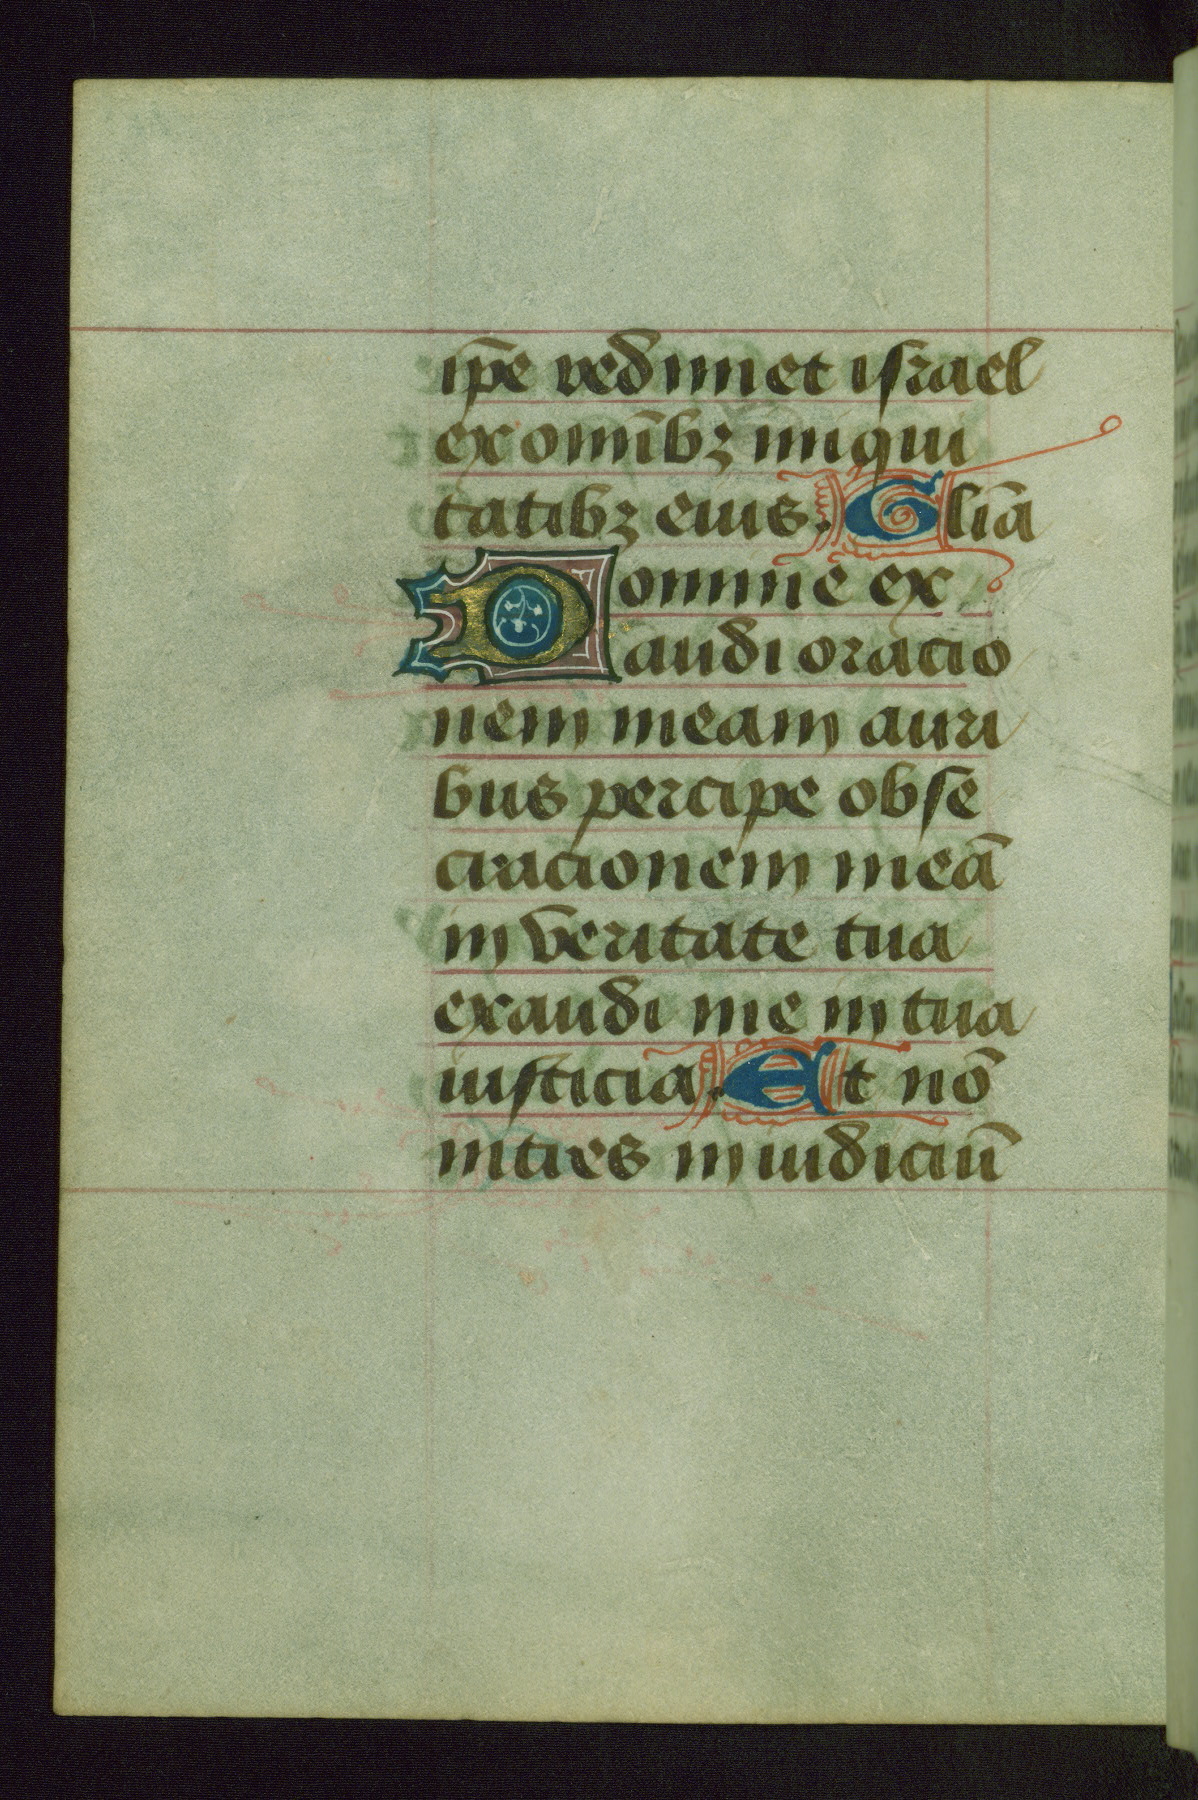 ip̄e redimet israel
ex om̄ibꝫ iniqui
tatibꝫ eius. Gl̄ia
Domine ex
audi oracio
nem meam auri
bus percipe obse
cracionem meā
in veritate tua
exaudi me in tua
iusticia. Et nō
intres in iudiciū